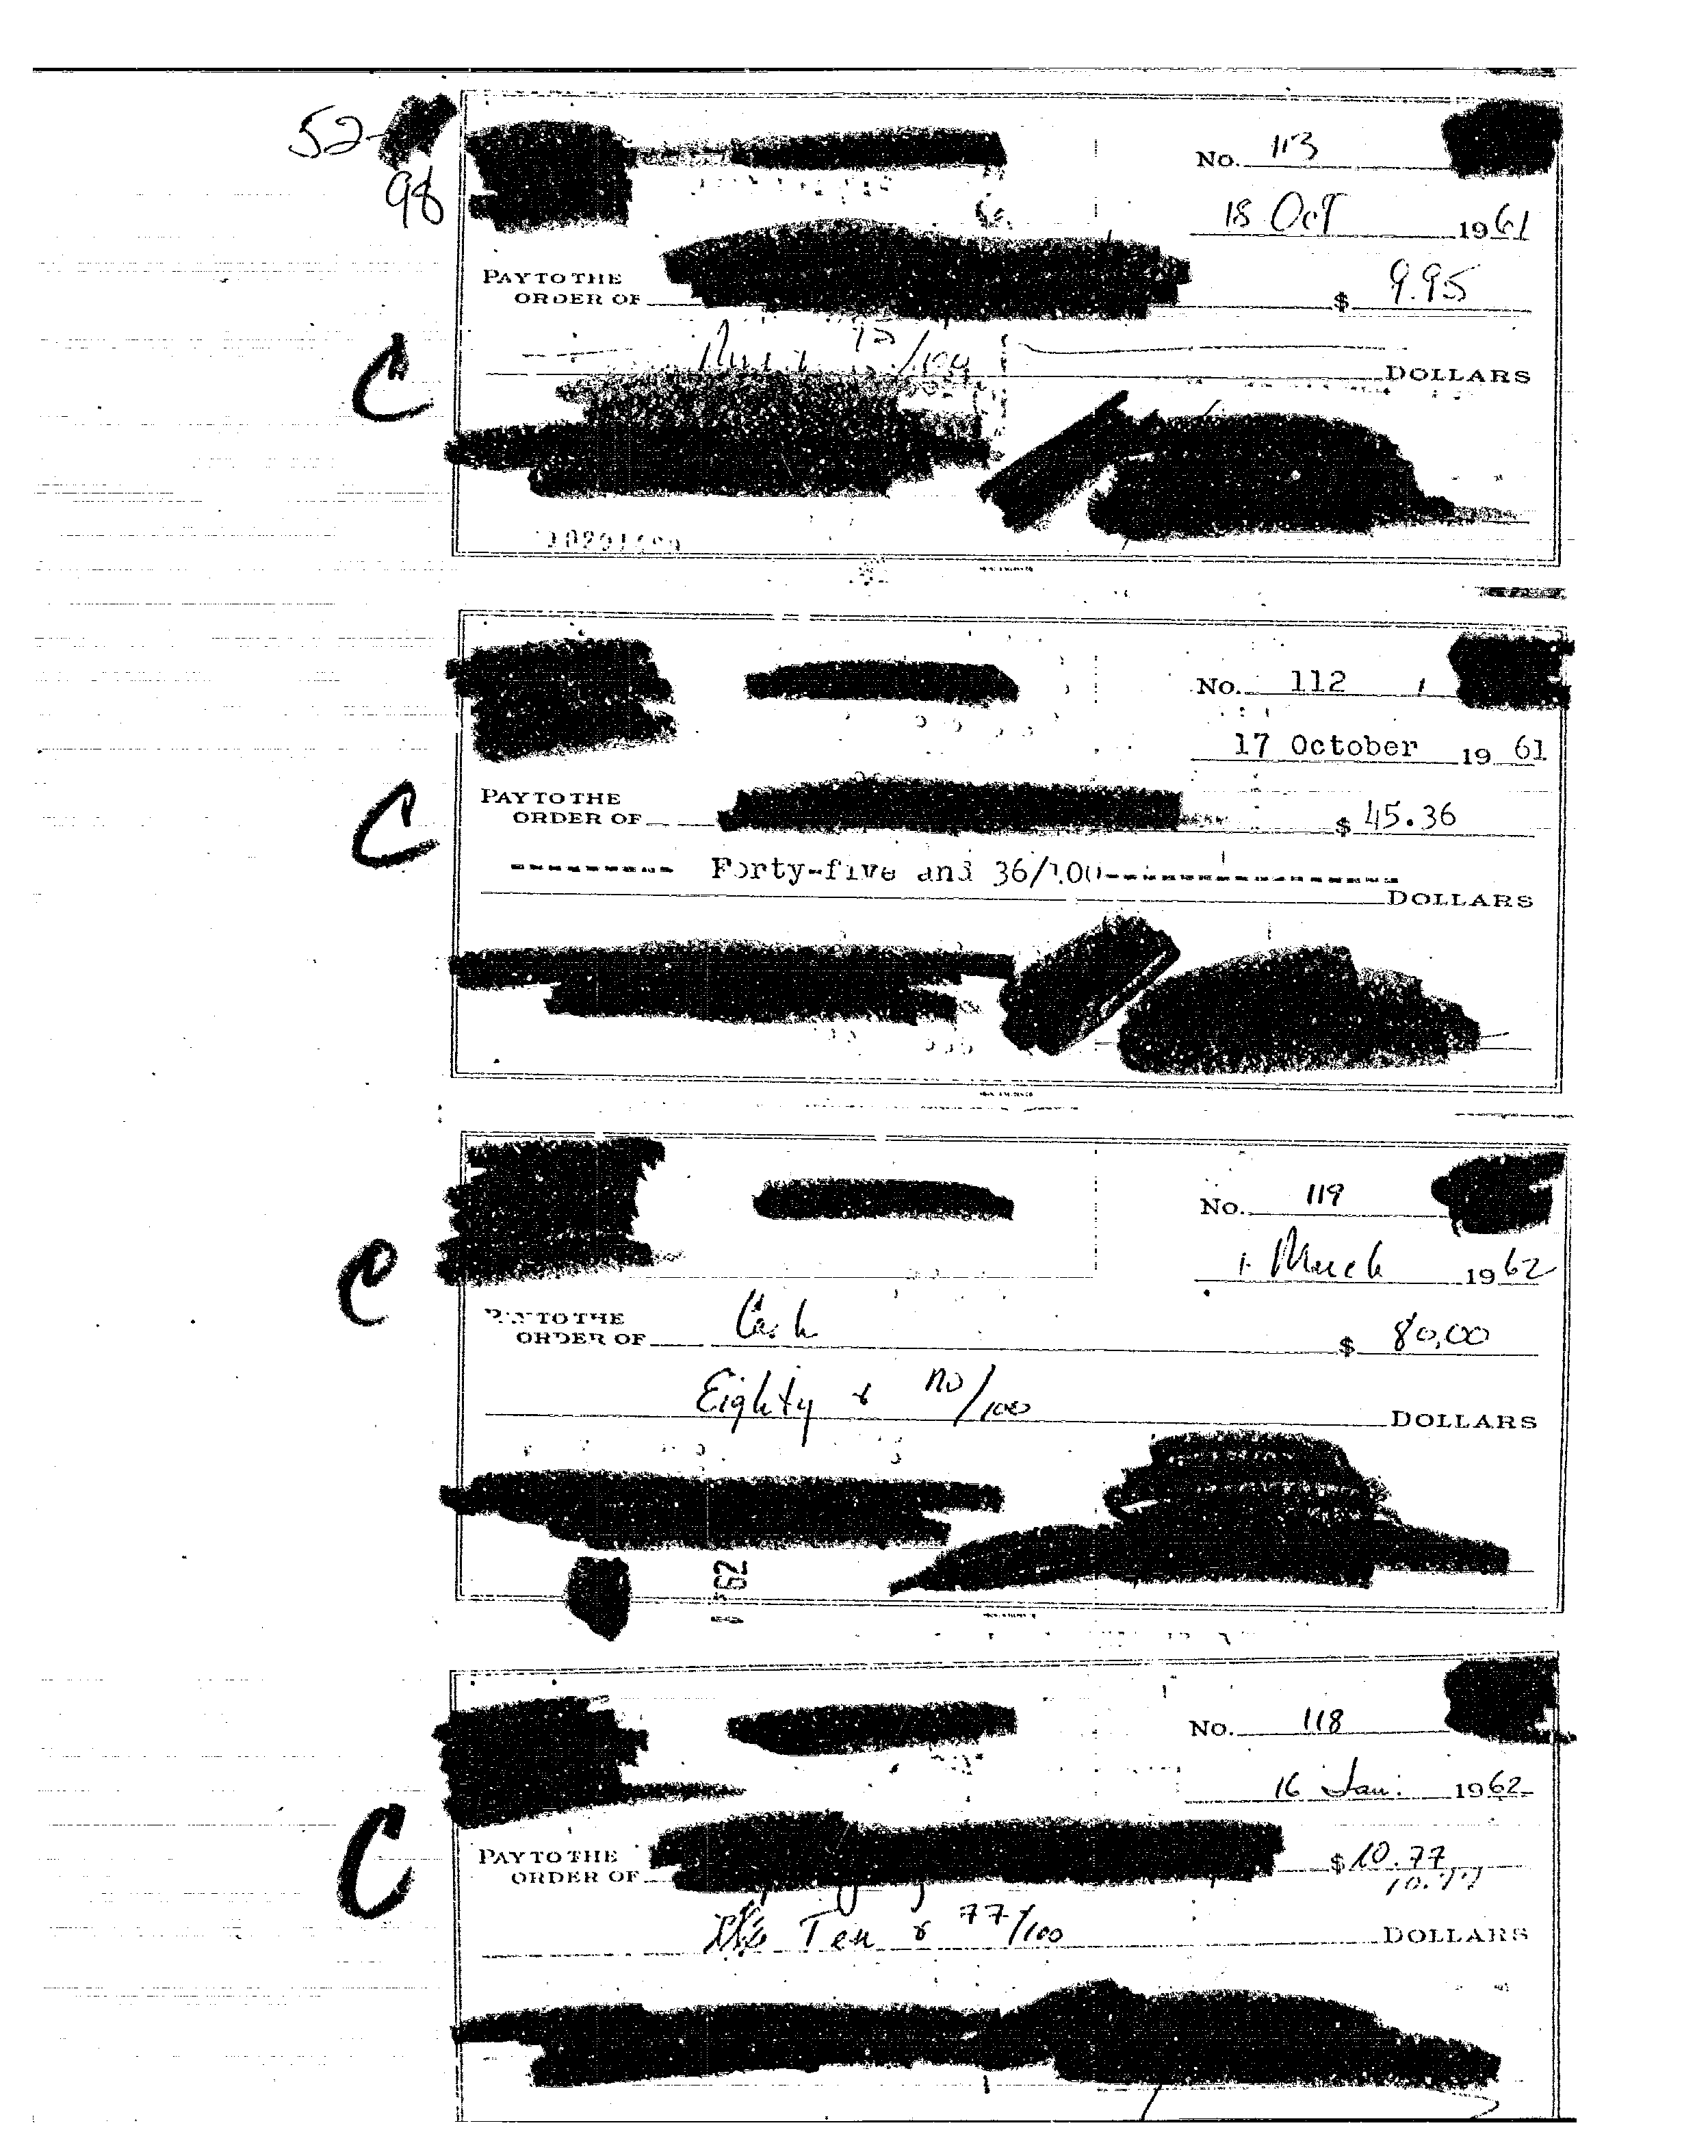 52-
98
No. 113
18 Oct 1961
PAY TO THE
ORDER OF $ 9.95
DOLLARS
C
No. 112
17 October 1961
PAY TO THE
ORDER OF $ 45.36
C
Forty-five and 36/100
DOLLARS
No. 119
1 March 1962
C
PAY TO THE
ORDER OF Cash $ 80.00
Eighty & no/100
DOLLARS
No. 118
16 Jan. 1962
C
PAY TO THE
ORDER OF $ 10.77
10.77
Ten & 77/100
DOLLARS